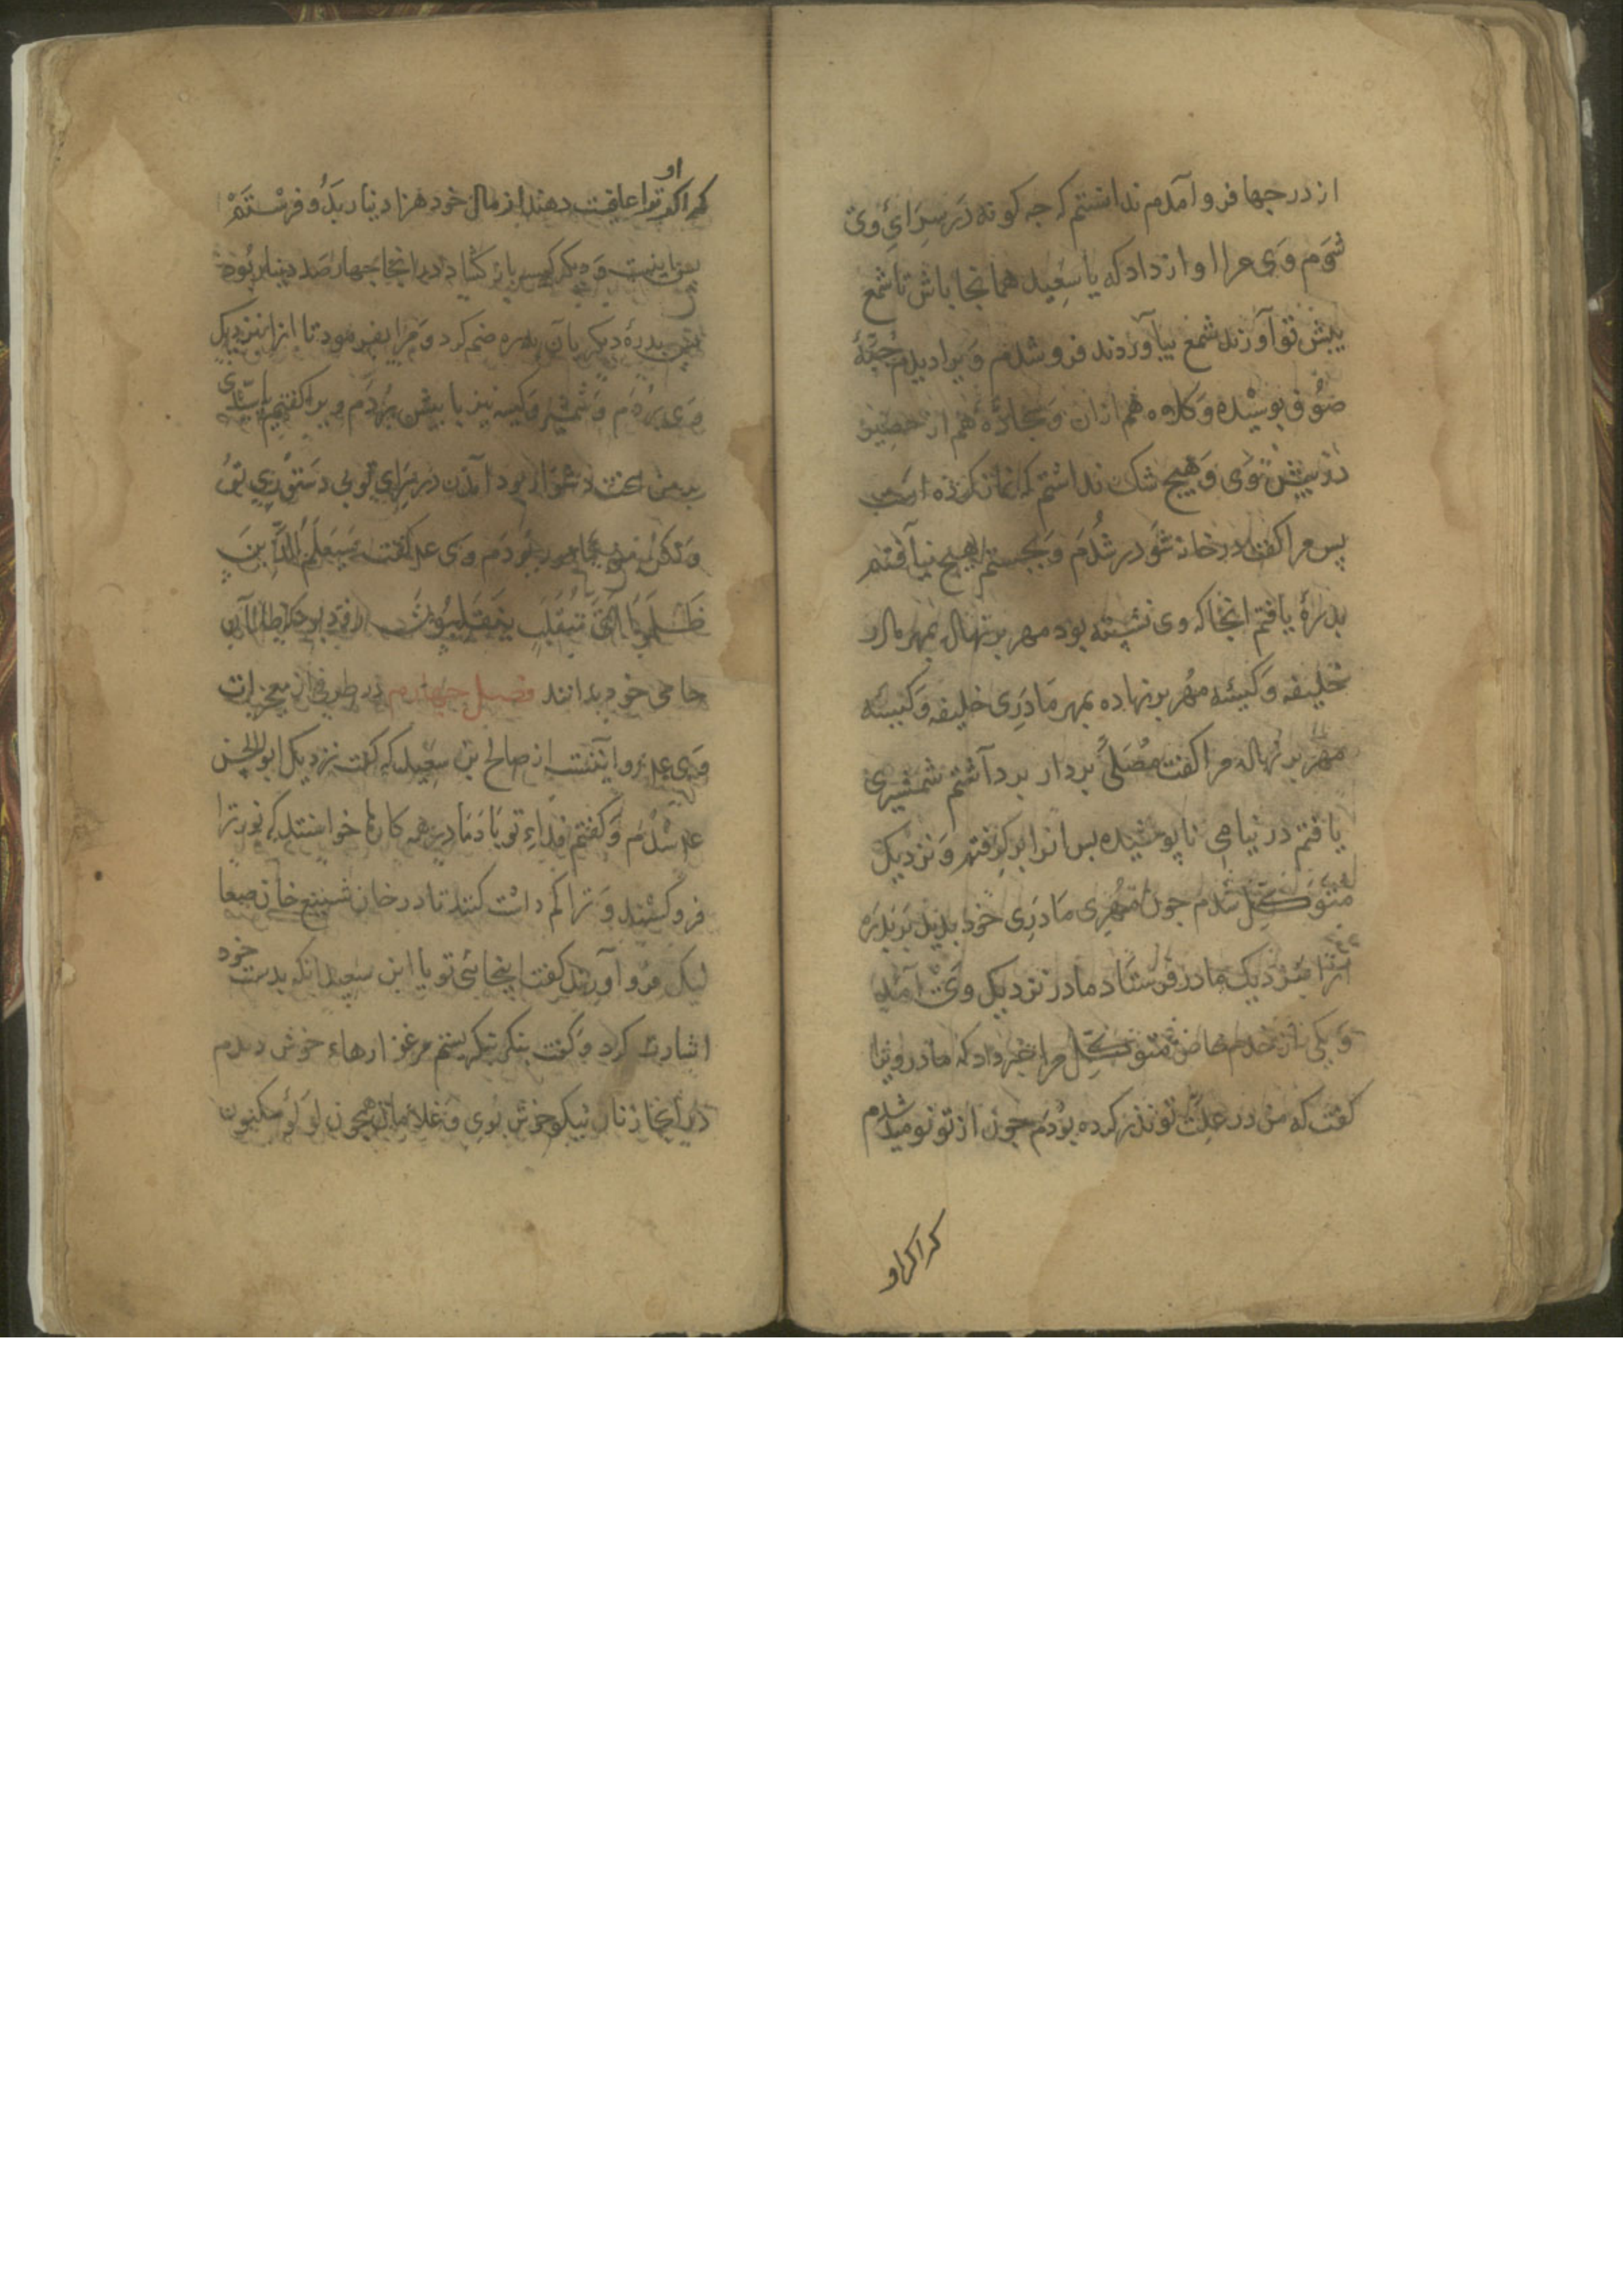 از درجها فرو آمدم ندانستم که جه کونه در سرای وی
شوم وی مرا اواز داد که یا سعید همانجا باش تا شمع
پیش تو آورند شمع بیآوردند فرو شدم ویرا دیدم جبّهٔ
صوف پوشیده و کلاه هم ازان و سجادهٔ هم از حصیر
در پیش وی و هیچ شک نداشتم که نماز کرده است
پس مرا کفت در خانه شو در شدم و بجستم هیچ نیآفتم
بدرهٔ یافتم انجا که وی نشسته بود مهر بر نهاده بمهر مادر
خلیفه و کیسهٔ مهر بر نهاده بمهر مادری خلیفه و کیسه
مهر بر نهاله مرا کفت مصلّی بردار برداشتم شمشیری
یافتم در نیامی ناپوشیده بس انرا برکرفتم و نزدیک
متوکّل شدم جون مهری مادری خود بدید بر بدره
انرا بنزدیک مادر فرستاد مادر نزدیک وی آمد
و یکی از خدم خاص متوکّل مرا خبر داد که مادر ویرا
کفت که من در علّت تو نذر کرده بودم جون از تو نومید شدم
که اکر او
که اکر او ترا عافیت دهند از مال خود هزار دینار بدو فرستم
اینست و دیکر کیسه باز کشاد در انجا جهار صد دینار بود
بس بدرهٔ دیکر بآن بدره ضم کرد و مرا بفرمود تا انرا بنزدیک
وی بردم و شمشیر و کیسه نیز با پیش بردم و برا کفتم یا سیّدی
بر من سخت دشوار بود آمدن در سرای تو بی دستوری تو
ولکن من مامور بودم وی عم کفت سیعلم الّذین
ظلموا ایّ منقلب ینقلبون
جای خود بدانند فصل جهارم در طرفی از معجزات
وی عم روایتست از صالح بن سعید که کفت نزدیک ابوالحسن
عم شدم و کفتم فداء تو بادما در همه کارها خواستند که نور ترا
فرو کشند و ترا کم داشت کنند تا در خان شنیع خان صعا
لیک فرو آورند کفت اینجائی تو یا ابن سعید انکه بدست خود
اشارت کرد و کفت بنکر بنکریستم مرغزارهاء خوش دیدم
در انجا زنان نیکو خوش بوی و غلامان همچون لؤلؤ مکنون